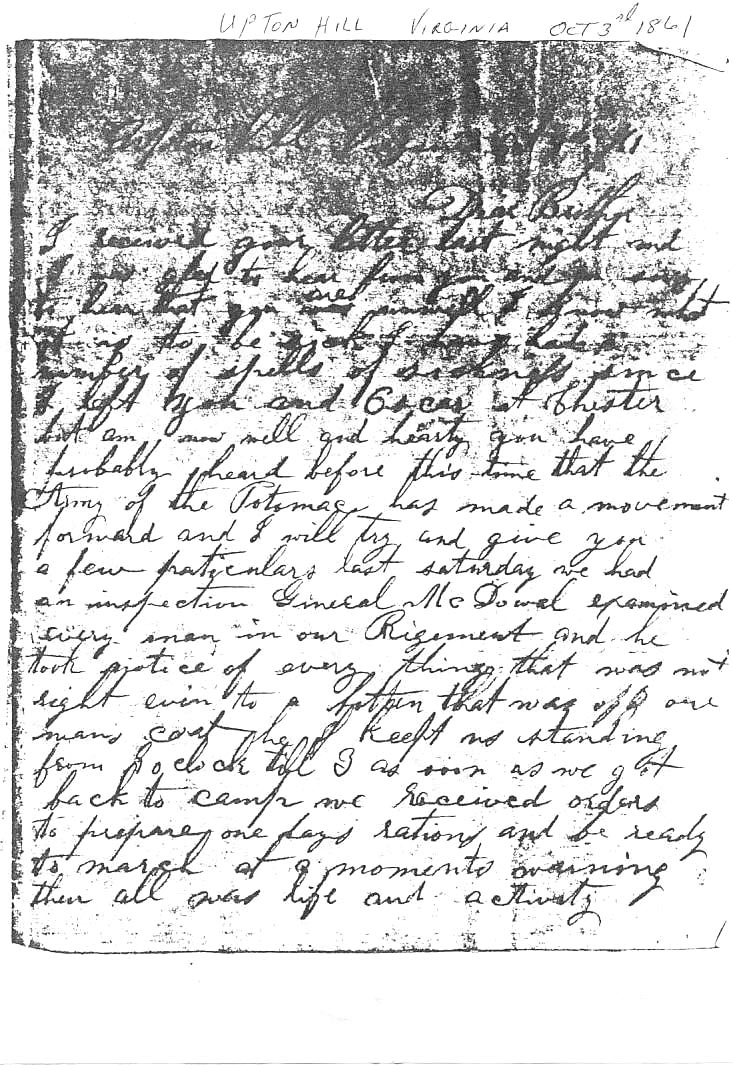 UPTON HILL VIRGINIA OCT 3rd 1861
Upton Hill
Dear Brother
I received your letter last night and
I was glad to hear from you and
to hear that you are I know what
it is to be sick I have had a
number of spells of sickness since
I left you and Oscar at Chester
but am now well and hearty you have
probably heard before this time that the
Army of the Potomac has made a movement
forward and I will try and give you
a few particulars last saturday we had
an inspection Gineral McDowal examined
every man in our Rigement and he
took notice of every thing that was not
right evin to a botten that was off one
mans coat he kept us standing
from oclock till 3 as soon as we got
back to camp we received orders
to prepare one days rations and be ready
to march at a moments warning
then all was life and activity